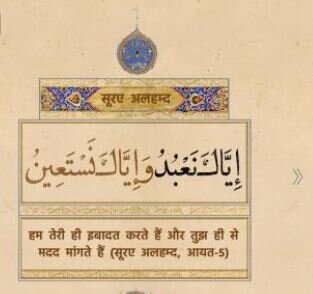 सूरए अलहम्द
إِيَّاكَ نَعْبُدُ وَإِيَّاكَ نَسْتَعِينُ
हम तेरी ही इबादत करते हैं और तुझ ही से
मदद मांगते हैं (सूरए अलहम्द, आयत-5)